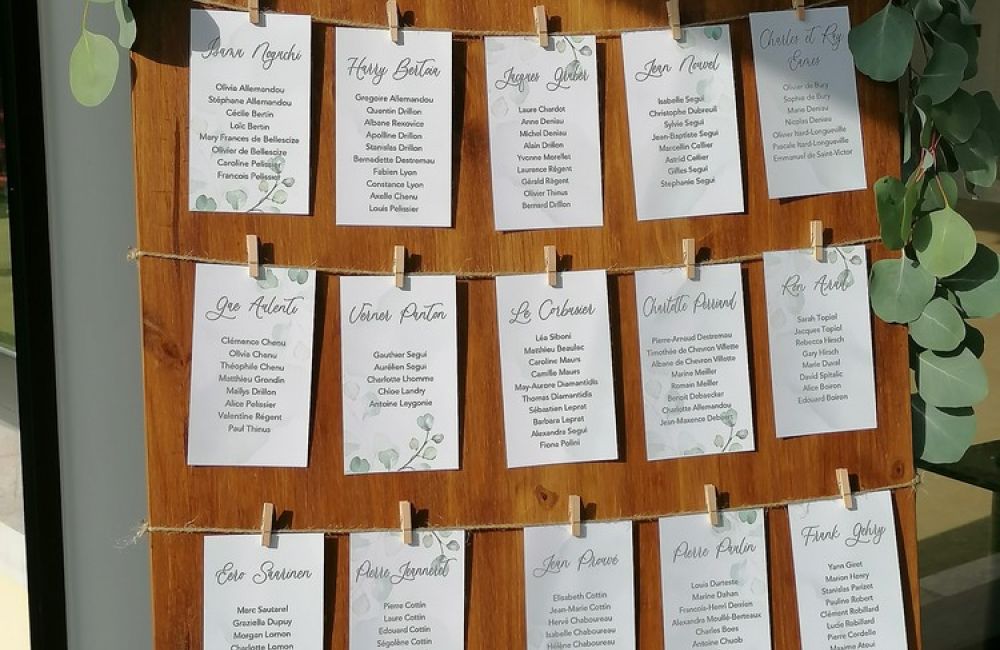 Isamu Noguchi
Olivia Allemandou
Stéphane Allemandou
Cécile Bertin
Loïc Bertin
Mary Frances de Bellescize
Olivier de Bellescize
Caroline Pelissier
Francois Pelissier
Harry Bertoia
Gregoire Allemandou
Quentin Drillon
Albane Rexovice
Apolline Drillon
Stanislas Drillon
Bernadette Destremau
Fabien Lyon
Constance Lyon
Axelle Chenu
Louis Pelissier
Jacques Gruber
Laure Chardot
Anne Deniau
Michel Deniau
Alain Drillon
Yvonne Morellet
Laurence Régent
Gérald Régent
Olivier Thinus
Bernard Drillon
Jean Nouvel
Isabelle Segui
Christophe Dubreuil
Sylvie Segui
Jean-Baptiste Segui
Marcellin Cellier
Astrid Cellier
Gilles Segui
Stephanie Segui
Charles et Ray
Eames
Olivier de Bury
Sophie de Bury
Marie Deniau
Nicolas Deniau
Olivier Itard-Longueville
Pascale Itard-Longueville
Emmanuel de Saint-Victor
Gae Aulenti
Clémence Chenu
Olivia Chenu
Théophile Chenu
Matthieu Grandin
Maïlys Drillon
Alice Pelissier
Valentine Régent
Paul Thinus
Verner Panton
Gauthier Segui
Aurélien Segui
Charlotte Lhomme
Chloe Landry
Antoine Leygonie
Le Corbusier
Léa Siboni
Matthieu Beaulec
Caroline Maurs
Camille Maurs
May-Aurore Diamantidis
Thomas Diamantidis
Sébastien Leprat
Barbara Leprat
Alexandra Segui
Fiona Polini
Charlotte Perriand
Pierre-Arnaud Destremau
Timothée de Chevron Villette
Albane de Chevron Villette
Marine Meiller
Romain Meiller
Benoit Debaecker
Charlotte Allemandou
Jean-Maxence Debaert
Ron Arad
Sarah Topiol
Jacques Topiol
Rebecca Hirsch
Gary Hirsch
Marie Duval
David Spitalic
Alice Boiron
Edouard Boiron
Eero Saarinen
Marc Sauterel
Graziella Dupuy
Morgan Lornon
Charlotte Lornon
Pierre Jeanneret
Pierre Cottin
Laure Cottin
Edouard Cottin
Ségolène Cottin
Jean Prouvé
Elisabeth Cottin
Jean-Marie Cottin
Hervé Chaboureau
Isabelle Chaboureau
Hélène Chaboureau
Pierre Paulin
Louis Durteste
Marine Dahan
Francois-Henri Derrien
Alexandra Moullé-Berteaux
Charles Boes
Antoine Chuob
Frank Gehry
Yann Giret
Marion Henry
Stanislas Parizet
Pauline Robert
Clément Robillard
Lucie Robillard
Pierre Cordelle
Maxime Atoui